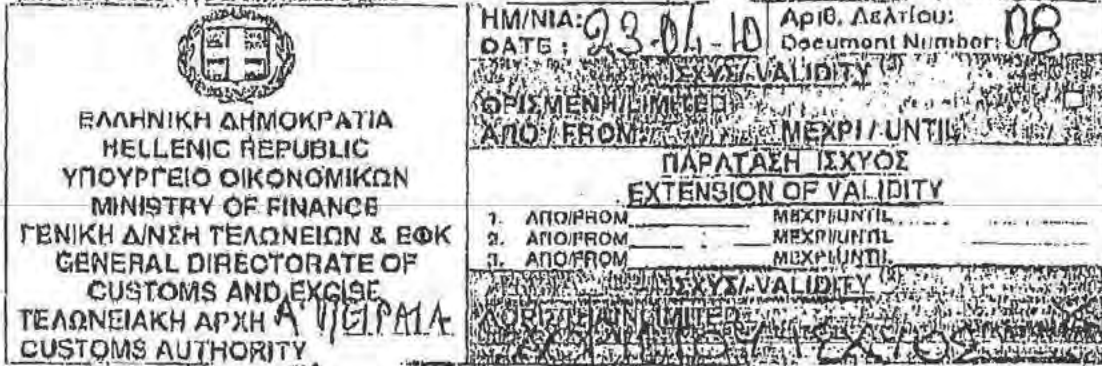 ΕΛΛΗΝΙΚΗ ΔΗΜΟΚΡΑΤΙΑ
HELLENIC REPUBLIC
ΥΠΟΥΡΓΕΙΟ ΟΙΚΟΝΟΜΙΚΩΝ
MINISTRY OF FINANCE
ΓΕΝΙΚΗ Δ/ΝΣΗ ΤΕΛΩΝΕΙΩΝ & ΕΦΚ
GENERAL DIRECTORATE OF
CUSTOMS AND EXCISE
ΤΕΛΩΝΕΙΑΚΗ ΑΡΧΗ Α'
CUSTOMS AUTHORITY
ΗΜ/ΝΙΑ:
DATE : 23-04-10
Αριθ. Δελτίου:
Document Number: 08
ΙΣΧΥΣ/VALIDITY
ΟΡΙΣΜΕΝΗ/LIMITED
ΑΠΟ / FROM ΜΕΧΡΙ / UNTIL
ΠΑΡΑΤΑΣΗ ΙΣΧΥΟΣ
EXTENSION OF VALIDITY
1. ΑΠΟ/FROM ΜΕΧΡΙ/UNTIL
2. ΑΠΟ/FROM ΜΕΧΡΙ/UNTIL
3. ΑΠΟ/FROM ΜΕΧΡΙ/UNTIL
ΙΣΧΥΣ/VALIDITY
ΑΟΡΙΣΤΗ/UNLIMITED
ΙΣΧΥΟΣ